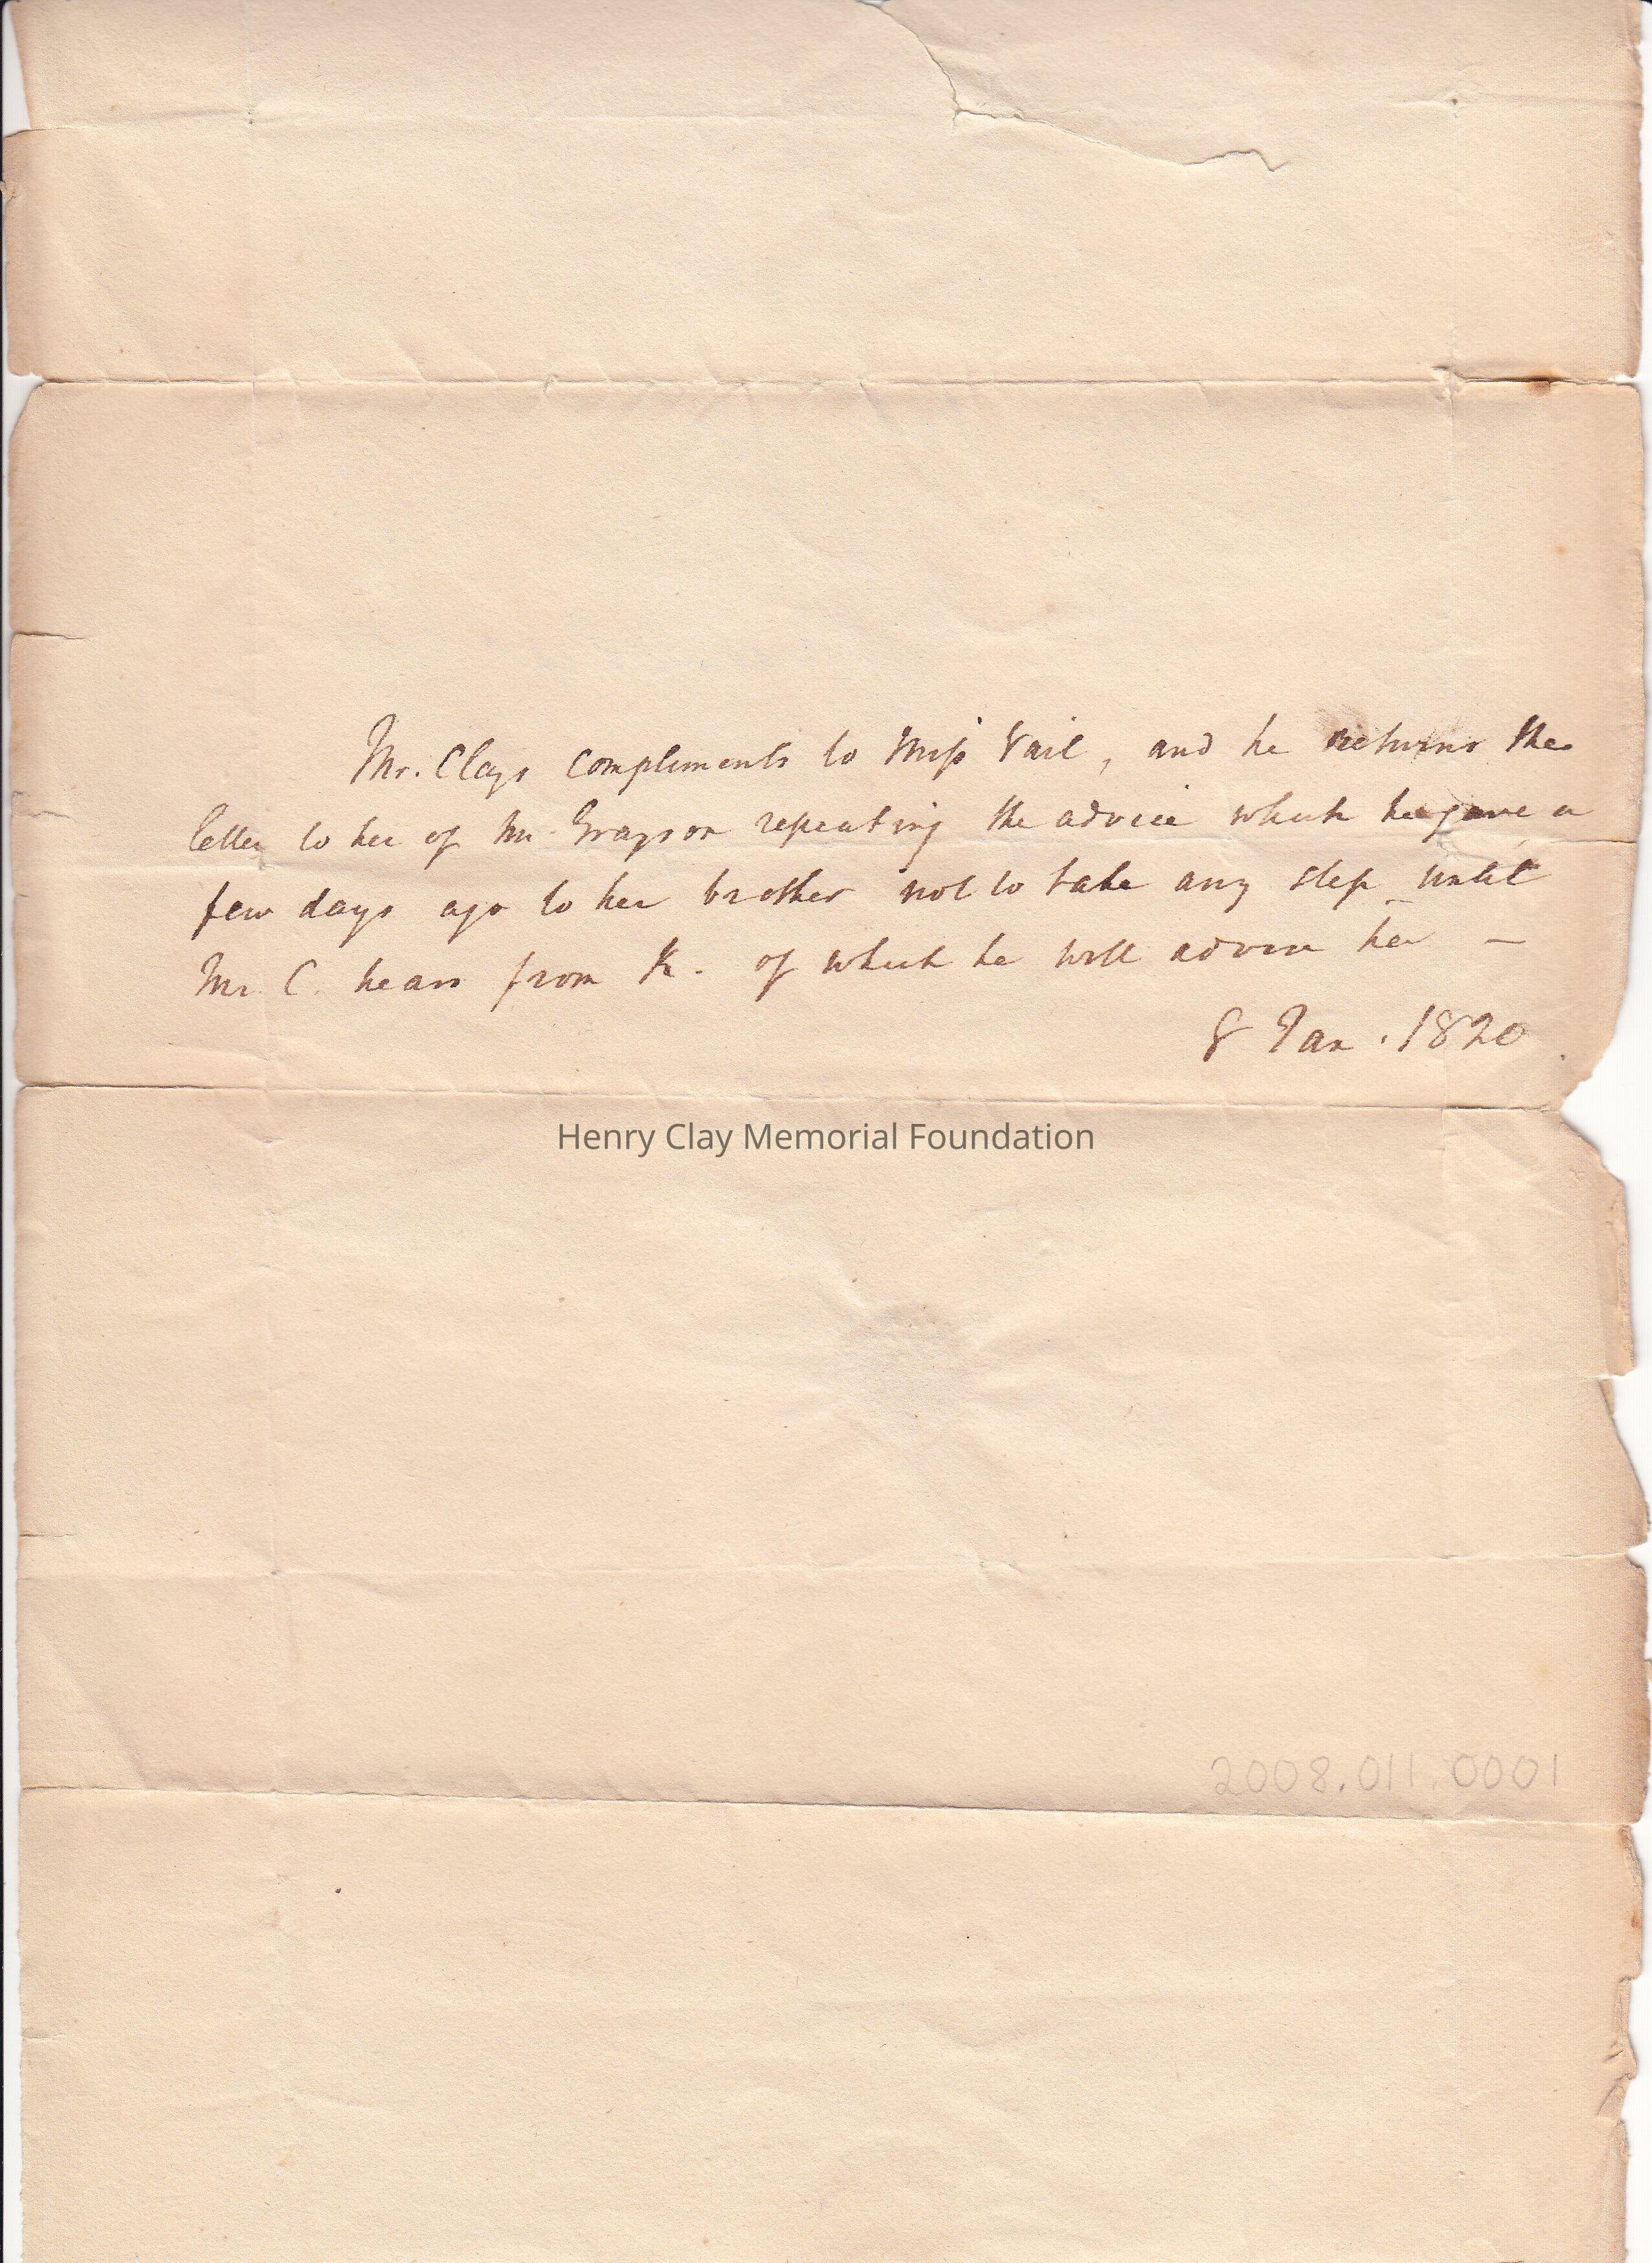 Mr. Clays compliments to Miss Vail, and he returns the
letter to her of Mr. Grayson repeating the advice which he gave a
few days ago to her brother not to take any step until
Mr. C. hears from K. of which he will advise her —
8 Jan. 1820.
Henry Clay Memorial Foundation
2008.011.0001